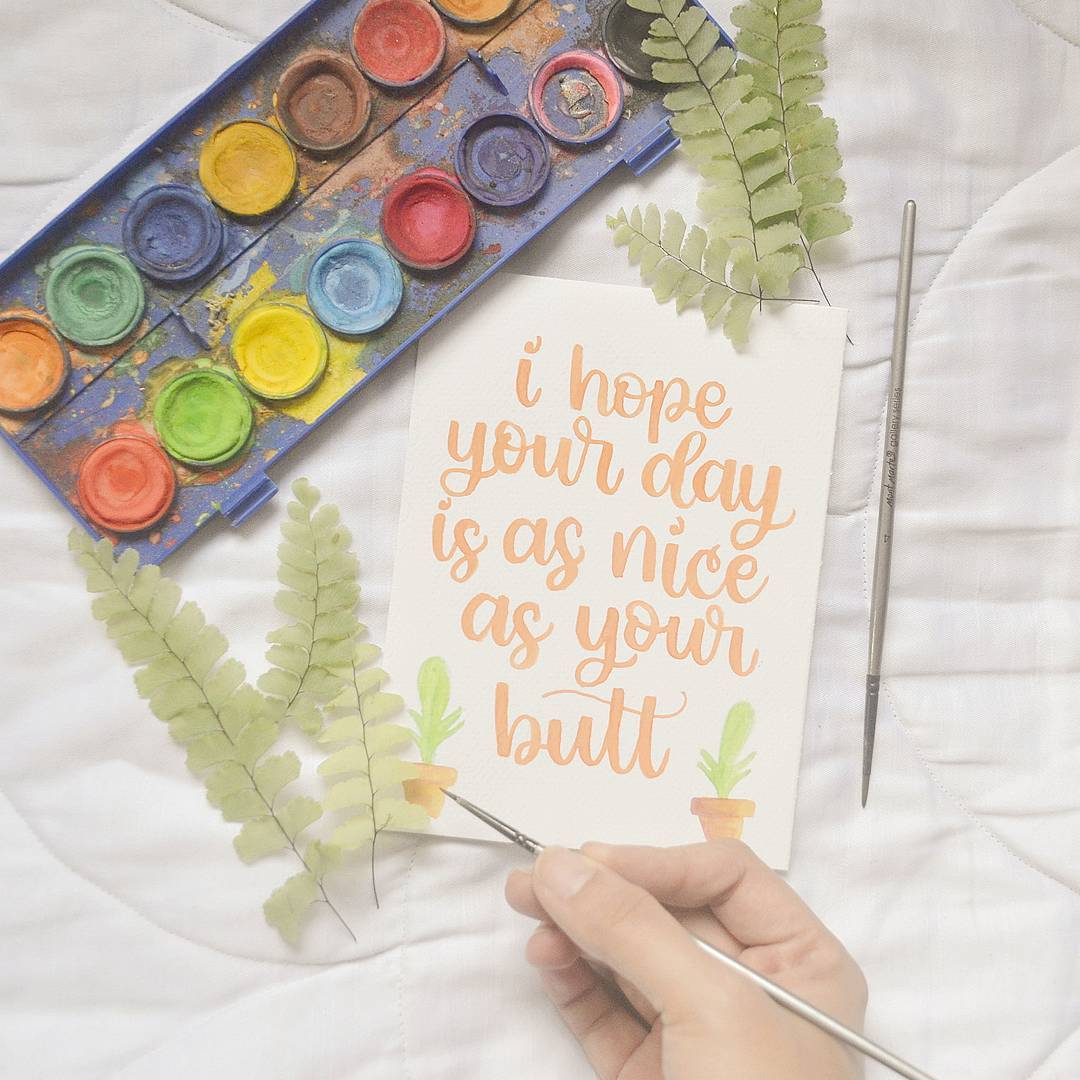 i hope
your day
is as nice
as your
butt
Mont Marte gallery series